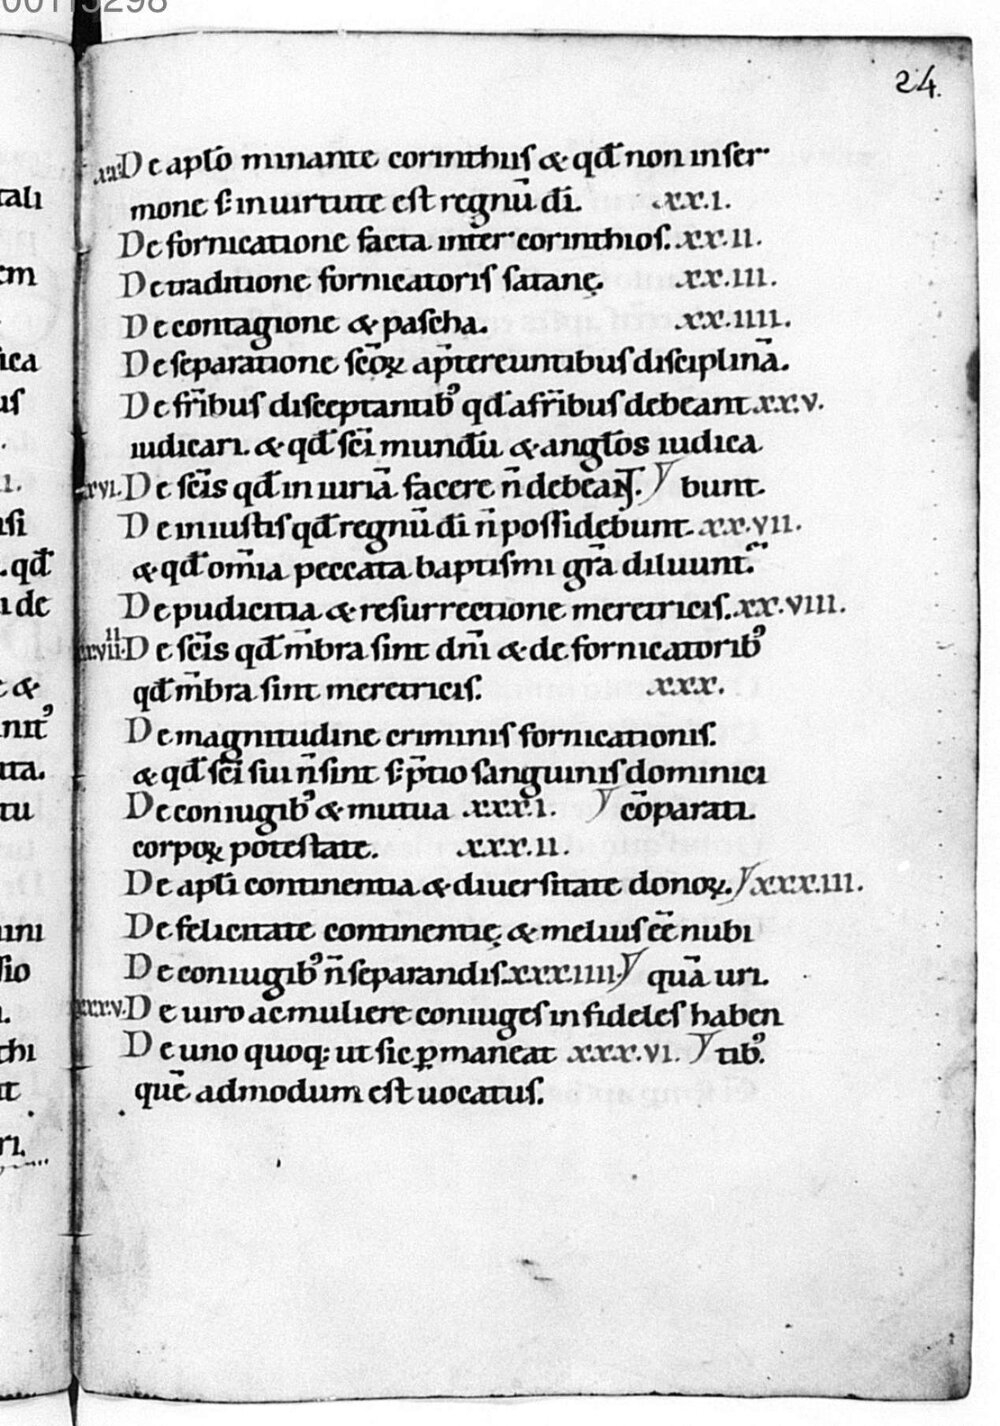 24.
.xx. De apło minante corinthiis & qđ non in ser
mone s; in uirtute est regnū dī. .xx.i.
De fornicatione facta inter corinthios. .xx.ii.
De traditione fornicatoris satanę. .xx.iii.
De contagione & pascha. .xx.iiii.
De separatione scōꝝ ap̄tereuntibus disciplinā.
De fr̄ibus disceptantibꝰ qđ a fr̄ibus debeant .xx.v.
iudicari. & qđ sc̄i mundū & angłos iudica
xxvi. De sc̄is qđ in iuriā facere n̄ debeant. bunt.
De iniustis qđ regnū dī n̄ possidebunt. .xx.vii.
& qđ om̄ia peccata baptismi gr̄a diluunt.
De pudicitia & resurrectione meretricis. .xx.viii.
De sc̄is qđ m̄bra sint dn̄i & de fornicatoribꝰ
qđ m̄bra sint meretricis. .xxx.
De magnitudine criminis fornicationis.
& qđ sc̄i sui n̄ sint s; p̄tio sanguinis dominici
De coniugibꝰ & mutua .xxx.i. cōparati.
corpoꝝ potestate. .xxx.ii.
De apłi continentia & diuersitate donoꝝ. .xxx.iii.
De felicitate continentię & melius eē nubi
De coniugibꝰ n̄ separandis. .xxx.iiii. quā uri.
xxx.v. De uiro ac muliere coniuges infideles haben
De uno quoq: ut sic ꝑmaneat .xxx.vi. tibꝰ.
quē admodum est uocatus.